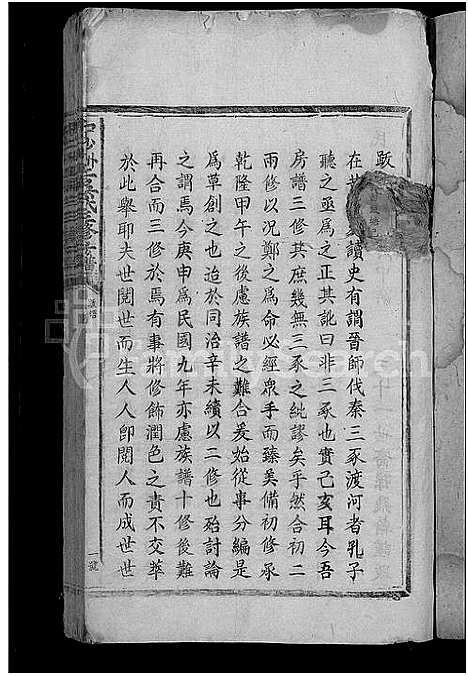 跋
在昔讀史有謂晉師伐秦三豕渡河者孔子
聽之亟爲之正其訛曰非三豕也實己亥耳今吾
房譜三修其庶幾無三豕之紕謬矣乎然合初二
兩修以况鄭之爲命必經衆手而臻美備初修承
乾隆甲午之後慮族譜之難合爰始從事分編是
爲草創之也迨於同治辛未續以二修也殆討論
之謂焉今庚申爲民國九年亦慮族譜十修後難
再合而三修於焉有事將修飾潤色之責不交萃
於此舉耶夫世閱世而生人人卽閱人而成世世
一號